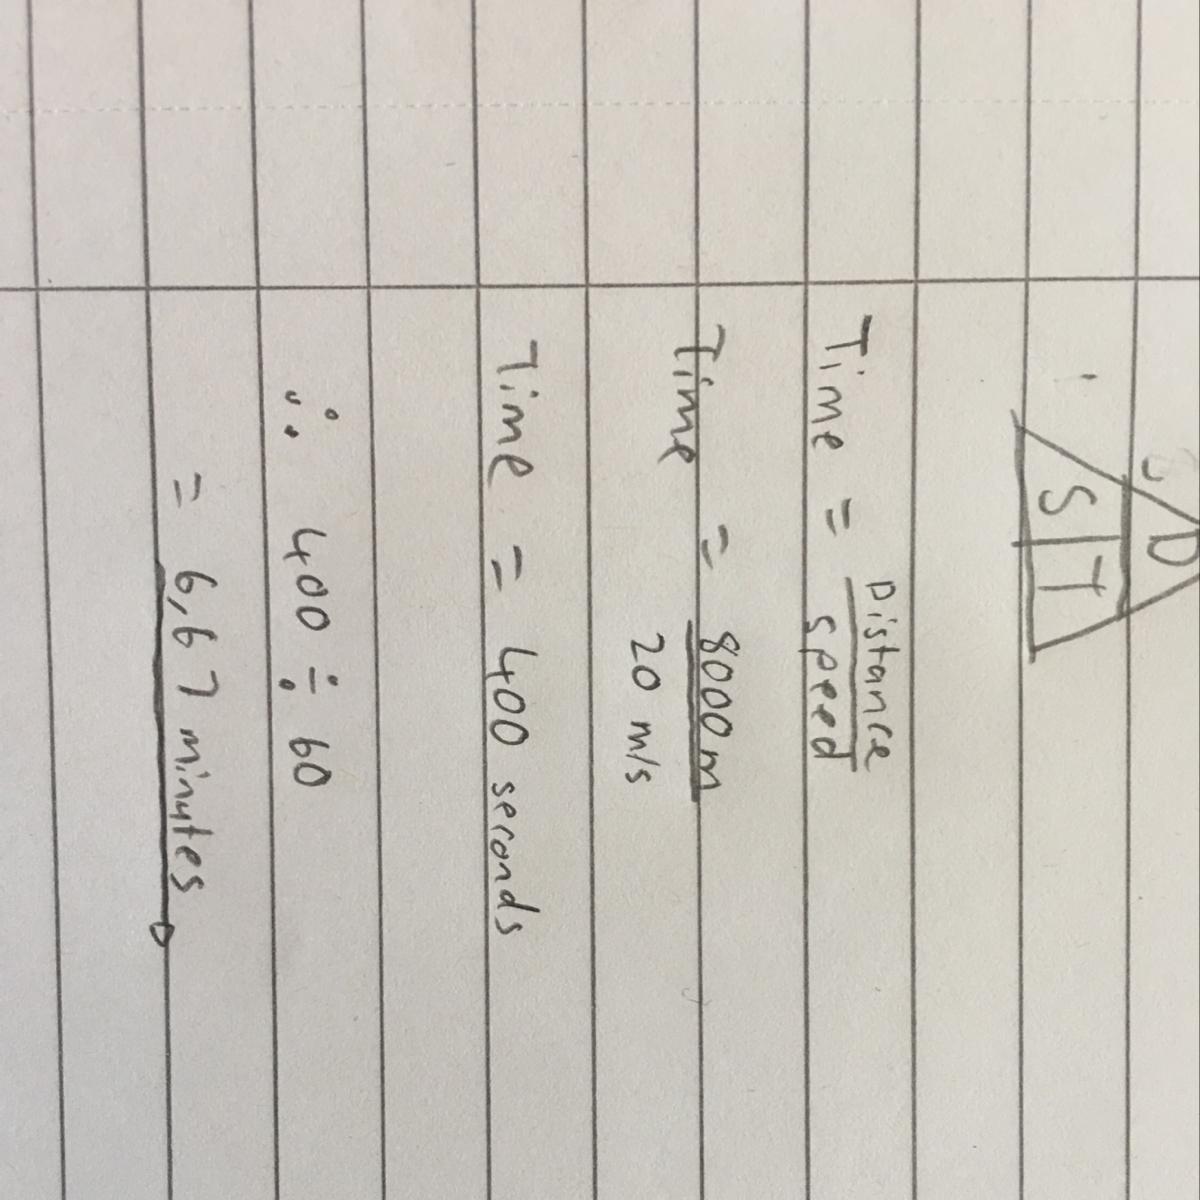 D
S T
Time = Distance
speed
Time = 8000m
20 m/s
Time = 400 seconds
∴ 400 ÷ 60
= 6,67 minutes